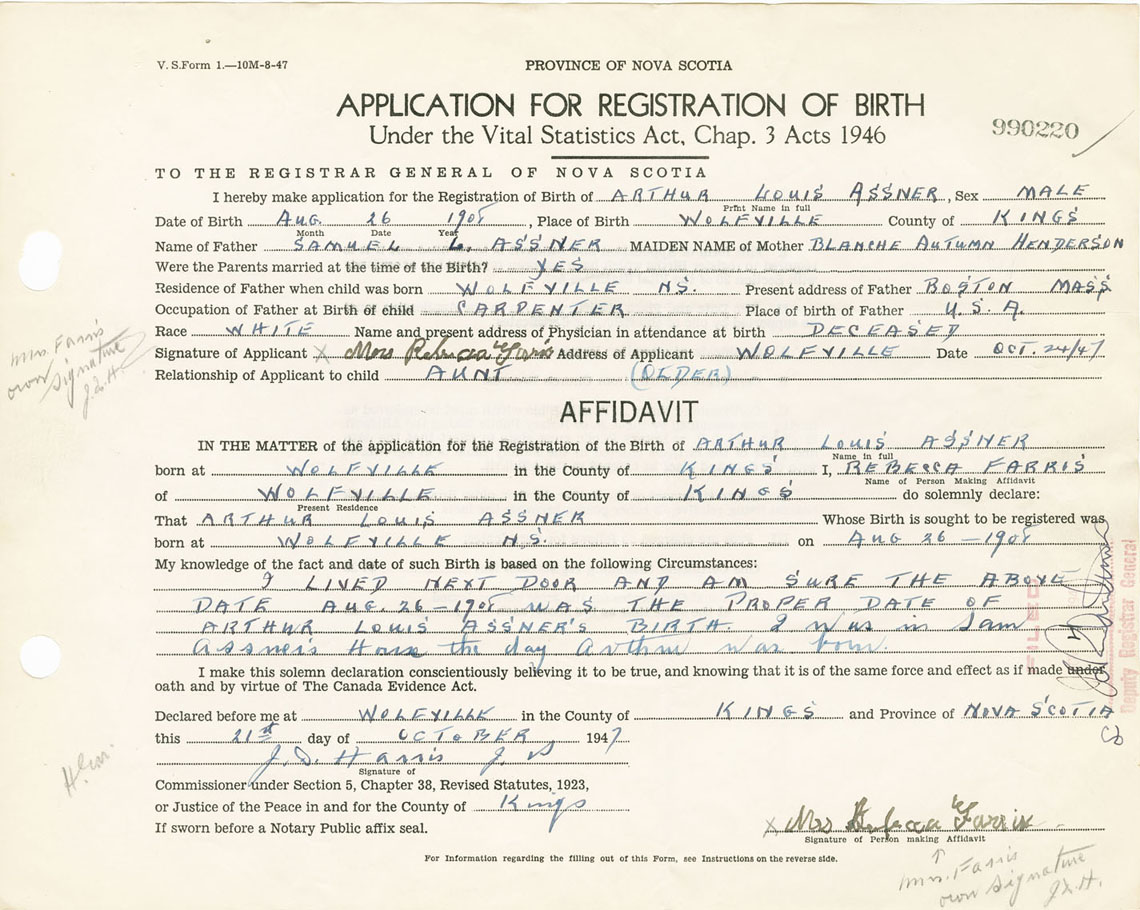 V. S.Form 1.—10M-8-47
PROVINCE OF NOVA SCOTIA
APPLICATION FOR REGISTRATION OF BIRTH
Under the Vital Statistics Act, Chap. 3 Acts 1946
990220
TO THE REGISTRAR GENERAL OF NOVA SCOTIA
I hereby make application for the Registration of Birth of ARTHUR LOUIS ASSNER, Sex MALE
Print Name in full
Date of Birth AUG. 26 1908, Place of Birth WOLFVILLE County of KINGS
Month Date Year
Name of Father SAMUEL L. ASSNER MAIDEN NAME of Mother BLANCHE AUTUMN HENDERSON
Were the Parents married at the time of the Birth? YES
Residence of Father when child was born WOLFVILLE NS. Present address of Father BOSTON MASS
Occupation of Father at Birth of child CARPENTER Place of birth of Father U.S.A.
Race WHITE Name and present address of Physician in attendance at birth DECEASED
Signature of Applicant x Mrs Rebecca Farris Address of Applicant WOLFVILLE Date OCT. 24/47
Mrs. Farris own Signature J.D.H.
Relationship of Applicant to child AUNT (OLDER)
AFFIDAVIT
IN THE MATTER of the application for the Registration of the Birth of ARTHUR LOUIS ASSNER
Name in full
born at WOLFVILLE in the County of KINGS I, REBECCA FARRIS
Name of Person Making Affidavit
of WOLFVILLE in the County of KINGS do solemnly declare:
Present Residence
That ARTHUR LOUIS ASSNER Whose Birth is sought to be registered was
born at WOLFVILLE NS. on AUG 26—1908
My knowledge of the fact and date of such Birth is based on the following Circumstances:
I LIVED NEXT DOOR AND AM SURE THE ABOVE
DATE AUG. 26—1908 WAS THE PROPER DATE OF
ARTHUR LOUIS ASSNER'S BIRTH. I was in Sam
Assner's House the day Arthur was born.
I make this solemn declaration conscientiously believing it to be true, and knowing that it is of the same force and effect as if made under
oath and by virtue of The Canada Evidence Act.
FILED
Deputy Registrar General
Declared before me at WOLFVILLE in the County of KINGS and Province of NOVA SCOTIA
this 21st day of OCTOBER 1947
J. D. Harris J.
Signature of
Commissioner under Section 5, Chapter 38, Revised Statutes, 1923,
or Justice of the Peace in and for the County of Kings
If sworn before a Notary Public affix seal.
x Mrs Rebecca Farris
Signature of Person making Affidavit
For Information regarding the filling out of this Form, see Instructions on the reverse side.
Mrs. Farris
own Signature
J.D.H.